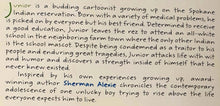 Junior is a budding cartoonist growing up on the Spokane
Indian Reservation. Born with a variety of medical problems, he
is picked on by everyone but his best friend. Determined to receive
a good education, Junior leaves the rez to attend an all-white
school in the neighboring farm town where the only other Indian
is the school mascot. Despite being condemned as a traitor to his
people and enduring great tragedies, Junior attacks life with wit
and humor and discovers a strength inside of himself that he
never knew existed.
Inspired by his own experiences growing up, award-
winning author Sherman Alexie chronicles the contemporary
adolescence of one unlucky boy trying to rise above the life
everyone expects him to live.